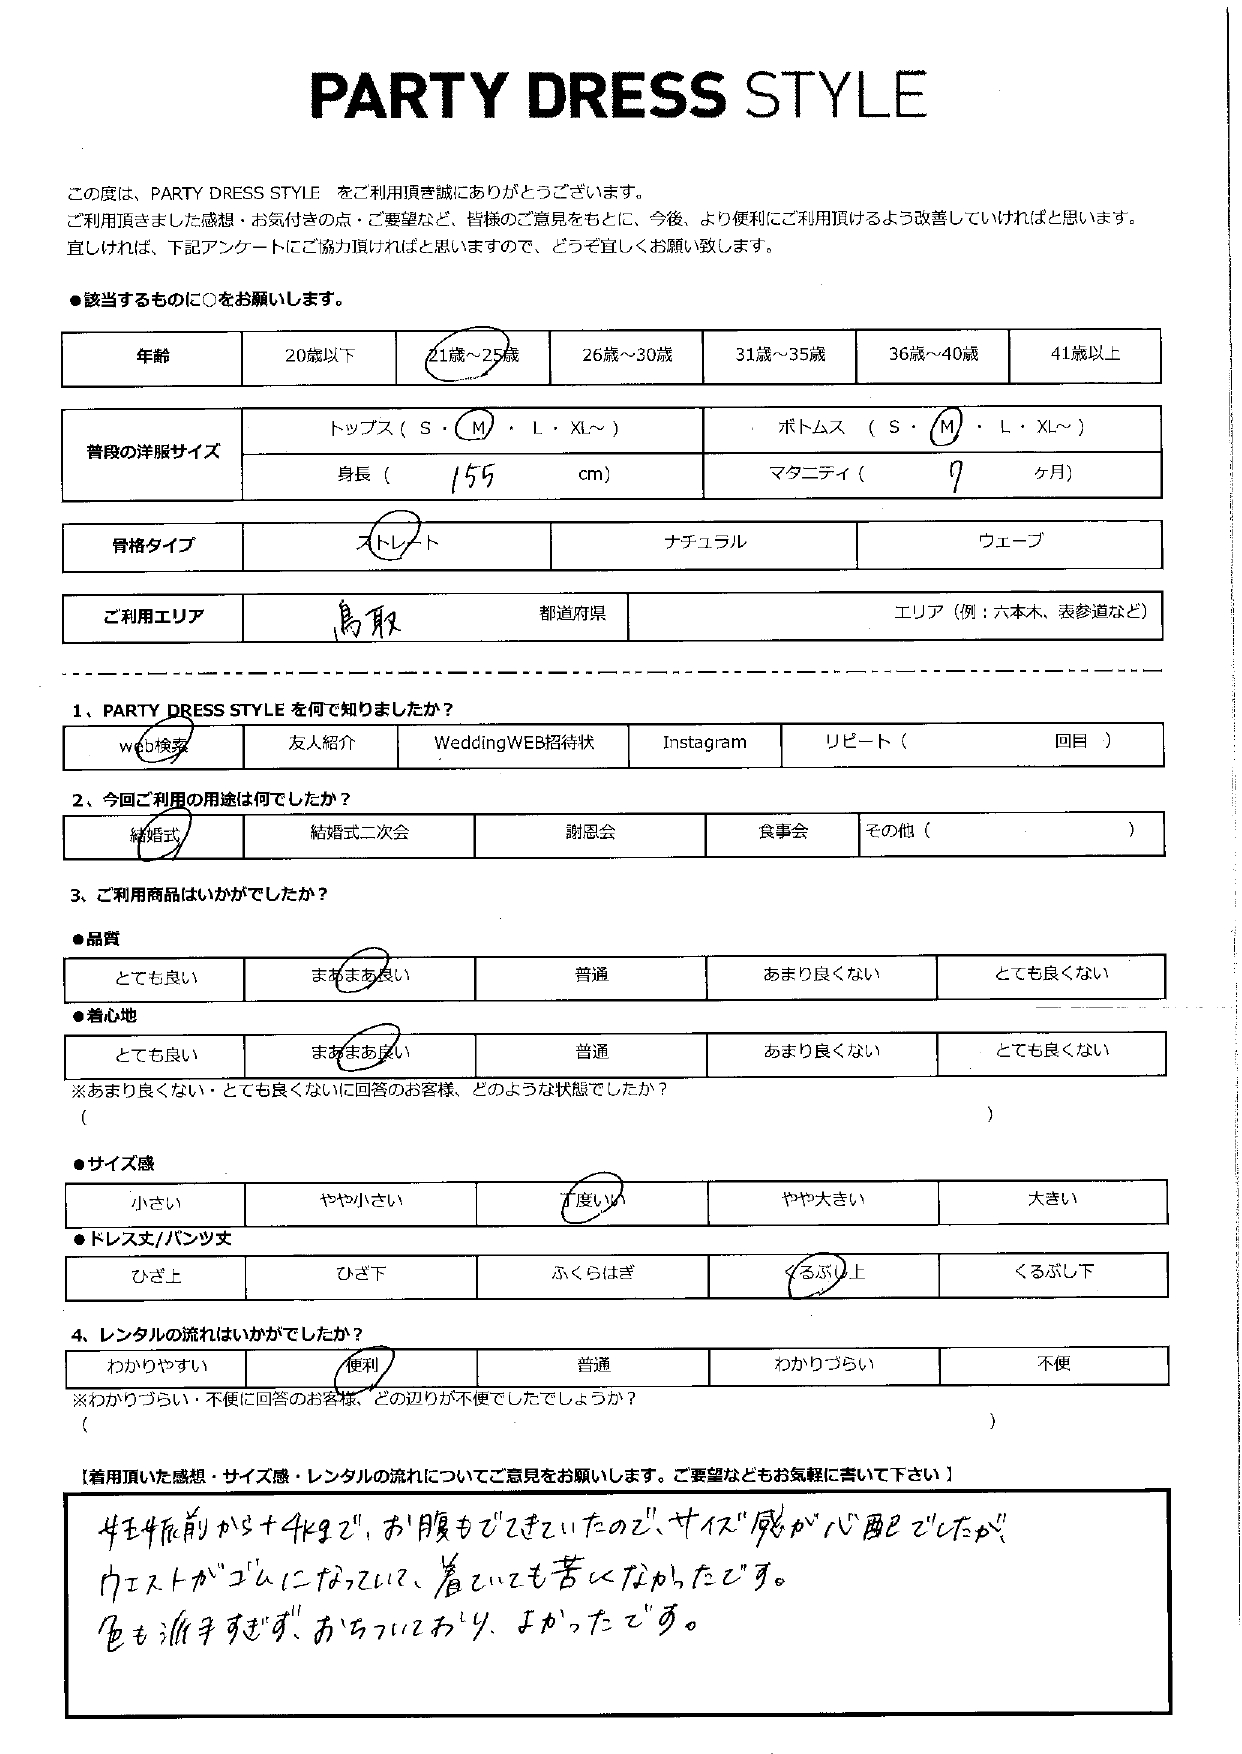 PARTY DRESS STYLE
この度は、PARTY DRESS STYLE をご利用頂き誠にありがとうございます。
ご利用頂きました感想・お気付きの点・ご要望など、皆様のご意見をもとに、今後、より便利にご利用頂けるよう改善していければと思います。
宜しければ、下記アンケートにご協力頂ければと思いますので、どうぞ宜しくお願い致します。
●該当するものに○をお願いします。
年齢 20歳以下 21歳～25歳 26歳～30歳 31歳～35歳 36歳～40歳 41歳以上
普段の洋服サイズ
トップス ( S ・ M ・ L ・ XL～ ) ボトムス ( S ・ M ・ L ・ XL～ )
身長 ( 155 cm) マタニティ ( 7 ヶ月)
骨格タイプ ストレート ナチュラル ウェーブ
ご利用エリア 鳥取 都道府県 エリア（例：六本木、表参道など）
1、PARTY DRESS STYLE を何で知りましたか？
web検索 友人紹介 WeddingWEB招待状 Instagram リピート ( 回目 )
2、今回ご利用の用途は何でしたか？
結婚式 結婚式二次会 謝恩会 食事会 その他 ( )
3、ご利用商品はいかがでしたか？
●品質
とても良い まあまあ良い 普通 あまり良くない とても良くない
●着心地
とても良い まあまあ良い 普通 あまり良くない とても良くない
※あまり良くない・とても良くないに回答のお客様、どのような状態でしたか？
( )
●サイズ感
小さい やや小さい 丁度いい やや大きい 大きい
●ドレス丈/パンツ丈
ひざ上 ひざ下 ふくらはぎ くるぶし上 くるぶし下
4、レンタルの流れはいかがでしたか？
わかりやすい 便利 普通 わかりづらい 不便
※わかりづらい・不便に回答のお客様、どの辺りが不便でしたでしょうか？
( )
【着用頂いた感想・サイズ感・レンタルの流れについてご意見をお願いします。ご要望などもお気軽に書いて下さい】
妊娠前から＋4kgで、お腹もでてきていたので、サイズ感が心配でしたが、
ウエストがゴムになっていて、着ていても苦しくなかったです。
色も派手すぎず、おちついており、よかったです。